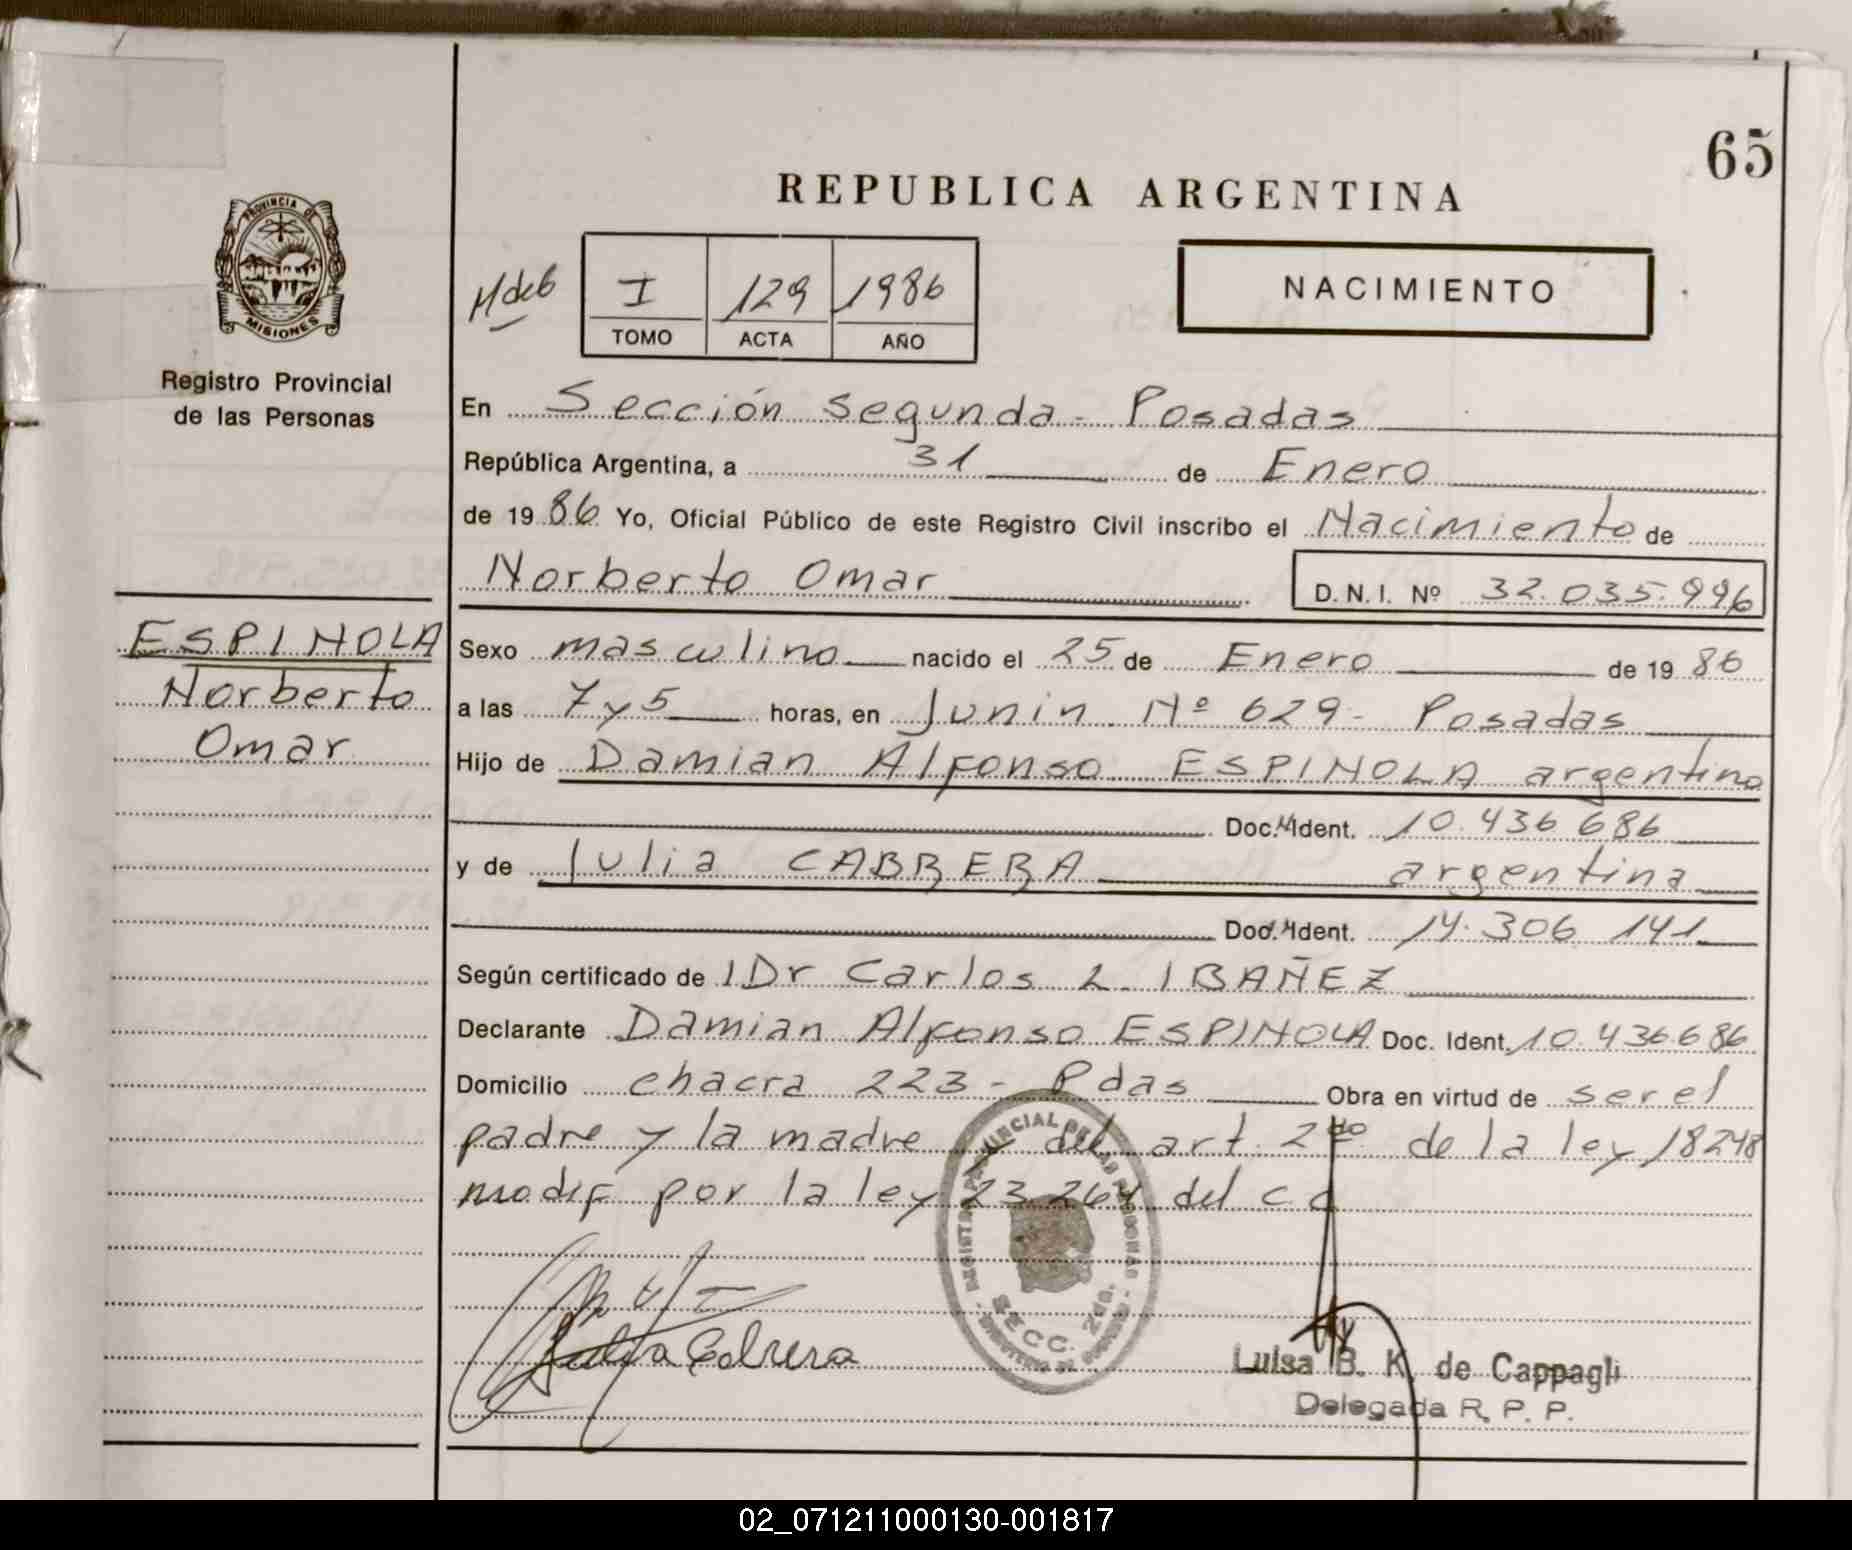 65
REPUBLICA ARGENTINA
PROVINCIA DE
MISIONES
Registro Provincial
de las Personas
I 129 1986
TOMO ACTA AÑO
NACIMIENTO
En Sección Segunda - Posadas
República Argentina, a 31 de Enero
de 1986 Yo, Oficial Público de este Registro Civil inscribo el Nacimiento de
Norberto Omar D.N.I. Nº 32.035.996
ESPINOLA
Norberto
Omar
Sexo masculino nacido el 25 de Enero de 1986
a las 7 y 5 horas, en Junin Nº 629 - Posadas
Hijo de Damian Alfonso ESPINOLA argentino
Doc. Ident. 10.436 686
y de Julia CABRERA argentina
Doc. Ident. 14.306 141
Según certificado de Dr Carlos L. IBAÑEZ
Declarante Damian Alfonso ESPINOLA Doc. Ident. 10.436.686
Domicilio chacra 223 - Pdas Obra en virtud de ser el
padre y la madre y del art. 2do de la ley 18248
modif por la ley 23.264 del c c
REGISTRO PROVINCIAL DE LAS PERSONAS
SECC. 2da.
MINISTERIO DE GOBIERNO
Julia Cabrera
Luisa B. K. de Cappagli
Delegada R. P. P.
02_071211000130-001817